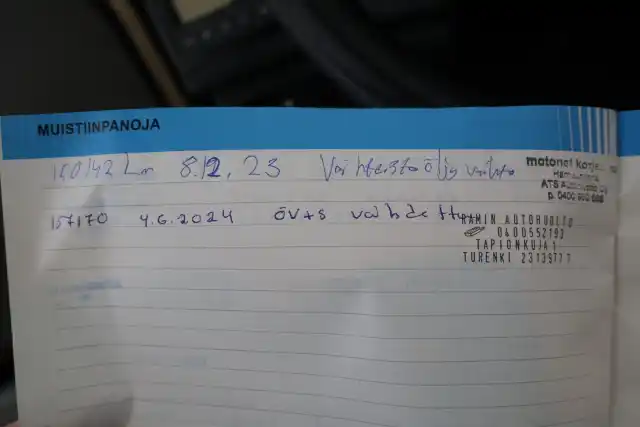 MUISTIINPANOJA
150142 km 8.12.23 Vaihteistoöljy vaihto
motonet korja
Hämeenlinna
ATS
p. 0400
157170 4.6.2024 ÖV+S vaihdettu
RAMIN AUTOHUOLTO
0400552193
TAPIONKUJA 1
TURENKI 2313977 7